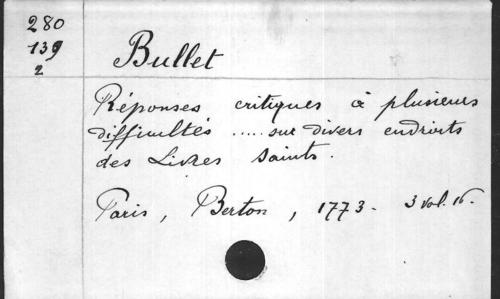 280
139
2
Bullet
Réponses critiques à plusieurs
difficultés ..... sur divers endroits
des Livres saints.
Paris, Berton, 1773. 3 vol. 16.